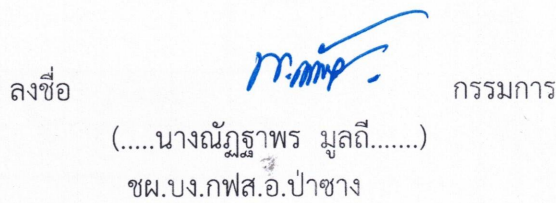 ลงชื่อ กรรมการ
(.....นางณัฏฐาพร มูลถี.......)
ชผ.บง.กฟส.อ.ป่าซาง